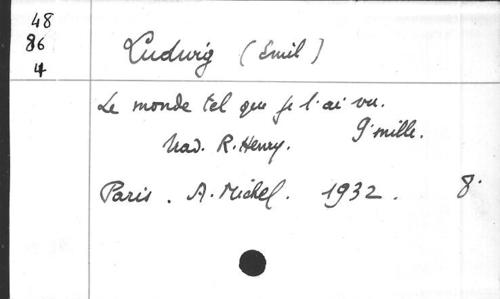 48
86
4
Ludwig (Emil)
Le monde tel que je l'ai vu.
9e mille.
trad. R. Henry.
Paris. A. Michel. 1932. 8°